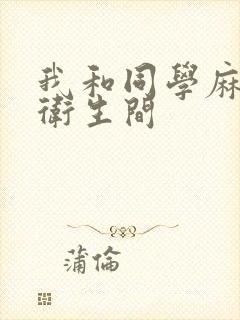 我和同學麻
衛生間
蒲倫